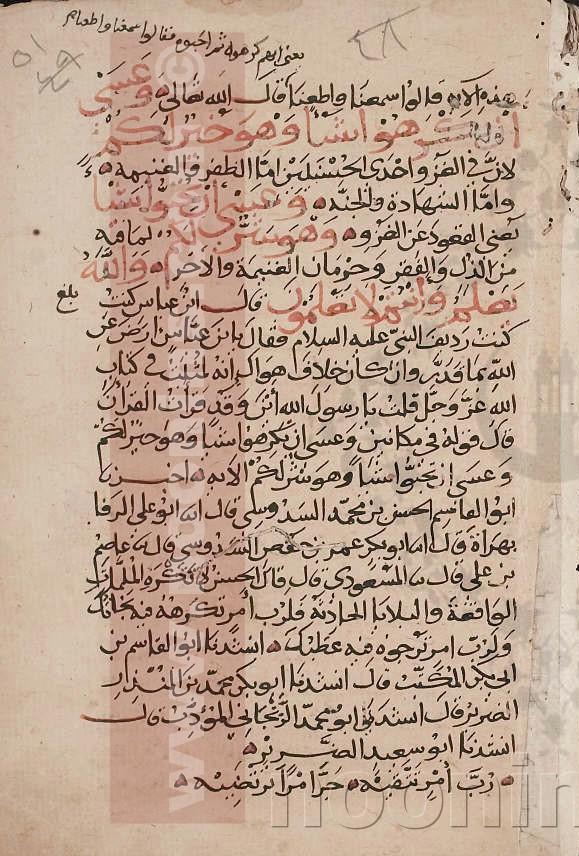 يعني انهم كرهوه ثم احبوه فقالوا سمعنا واطعنا
هذه الآية قالوا سمعنا واطعنا قال الله تعالى وعسى
ان تكرهوا شيا وهو خير لكم
لان في الغزو احدى الحسنيين اما الظفر والغنيمة
واما الشهادة والجنة وعسى ان تحبوا شيا
يعني القعود عن الغزو وهو شر لكم لما فيه
من الذل والفقر وحرمان الغنيمة والاجر والله
يعلم وانتم لا تعلمون قال ابن عباس كنت
بلغ
كنت رديف النبي عليه السلام فقال يا ابن عباس ارض عن
الله بما قدر وان كان خلاف هواك انه لمثبت في كتاب
الله عز وجل قلت يا رسول الله اين وقد قرات القران
قال قوله في مكانين وعسى ان تكرهوا شيا وهو خير لكم
وعسى ان تحبوا شيا وهو شر لكم الآية اخبرنا
ابو القاسم الحسن بن محمد السدوسي قال انا ابو علي الرفا
بهراة قال انا ابو بكر عمر بن حفص السدوسي قال نا عاصم
بن علي قال نا المسعودي قال قال الحسن لا تكره الملمات
الواقعة والبلايا الحادثة فلرب امر تكرهه فيه نجاتك
ولرب امر ترجوه فيه عطبك انشدنا ابو القاسم بن
ابي بكر المكتب قال انشدنا ابو بكر محمد بن المنذر
الضرير قال انشدني ابو محمد الزنجاني المؤدب قال
انشدنا ابو سعيد الضرير
رب امر تتقيه جر امرا ترتضيه
www.
noorin